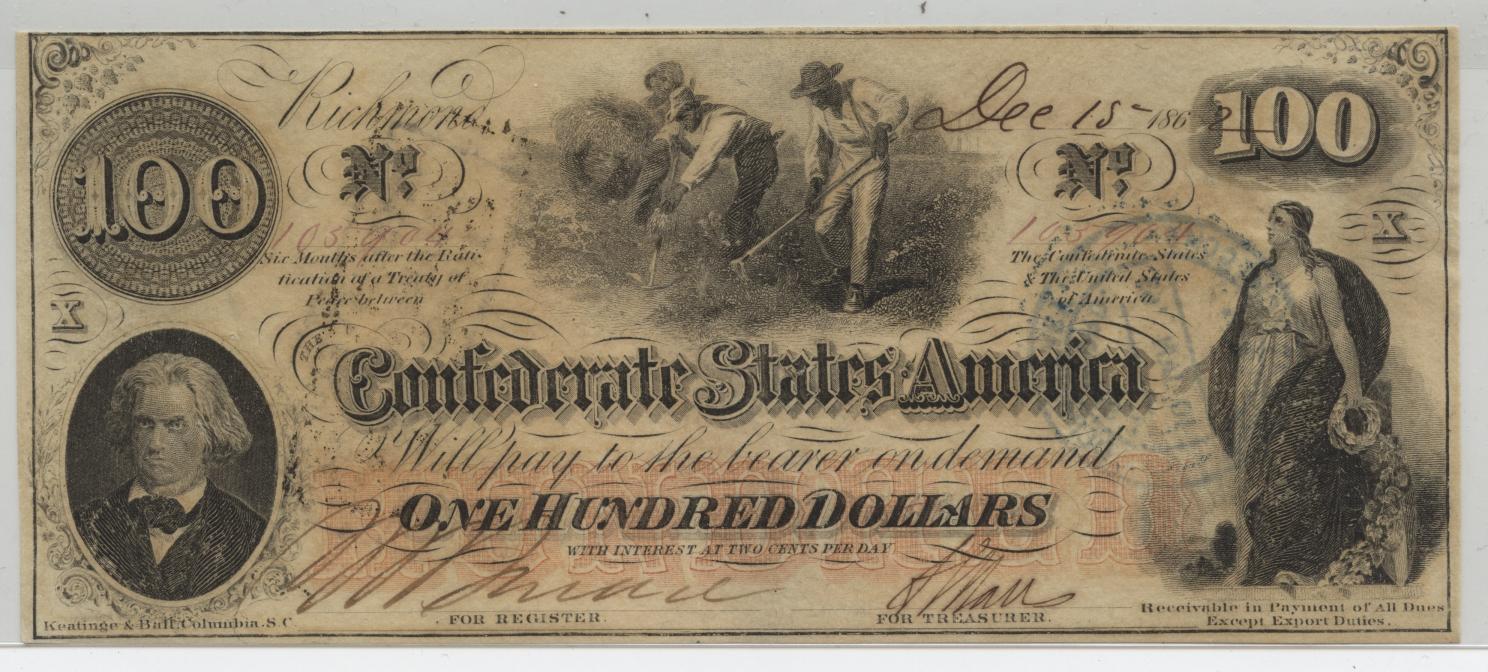 Richmond Dec 15 1862
100 100
No. No.
105904 105904
Six Months after the Rati-
fication of a Treaty of
Peace between
The Confederate States
& The United States
of America
X X
THE
Confederate States America
Will pay to the bearer on demand
ONE HUNDRED DOLLARS
HUNDRED
WITH INTEREST AT TWO CENTS PER DAY
FOR REGISTER.
FOR TREASURER.
Keatinge & Ball, Columbia, S.C.
Receivable in Payment of All Dues
Except Export Duties.